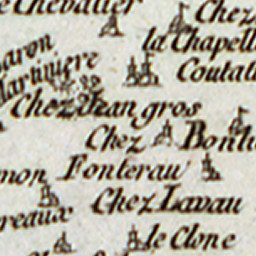 le Chevalier
Chez
la Chapell
aron
Martiniere
Coutal
Chez Jean gros
Chez Bonli
mon Fonterau
Chez Lavau
reaux
le Clone